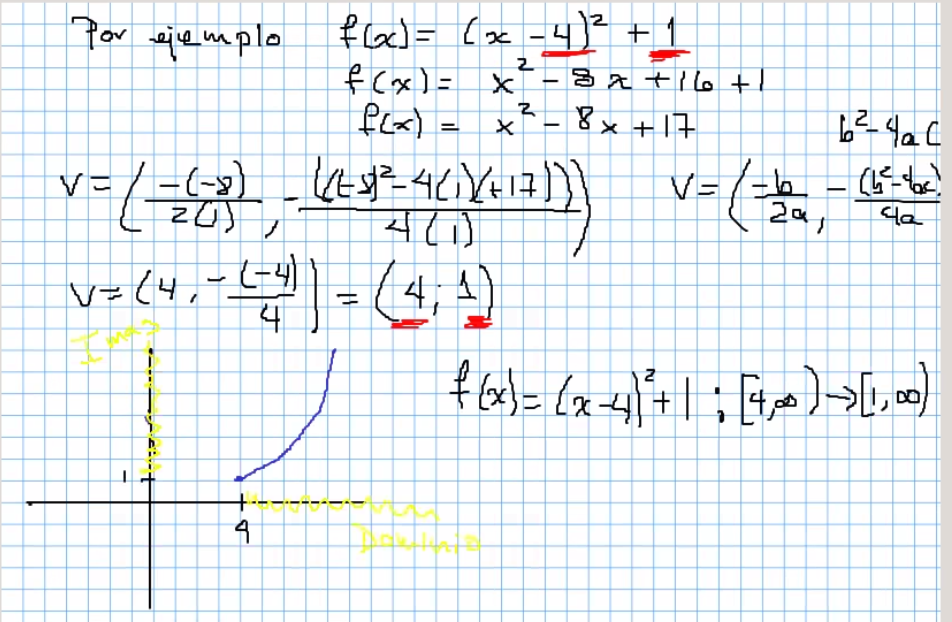 Por ejemplo f(x) = (x - 4)² + 1
f(x) = x² - 8x + 16 + 1
f(x) = x² - 8x + 17
b² - 4ac
V = (-(-8)/2(1), -((-8)² - 4(1)(+17))/4(1))
V = (-b/2a, -(b² - 4ac)/4a
V = (4, -(-4)/4) = (4; 1)
Imag
f(x) = (x-4)² + 1 ; [4,∞) → [1,∞)
1
4
Dominio